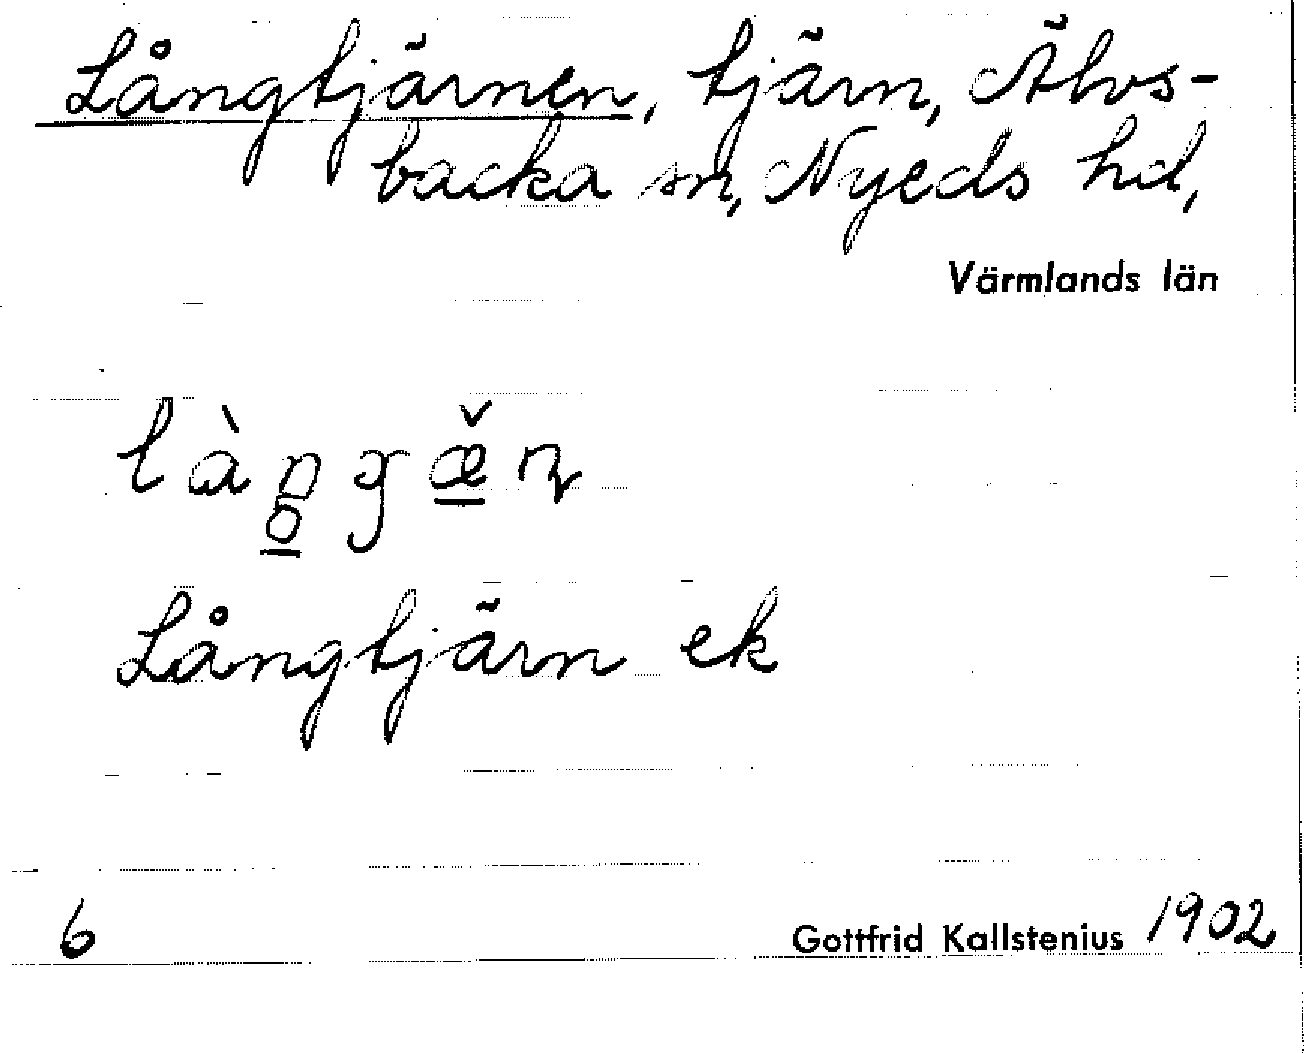 Långtjärnen, tjärn, Älvs-
backa sn, Nyeds hd,
Värmlands län
Långtjärn ek
6
Gottfrid Kallstenius 1902